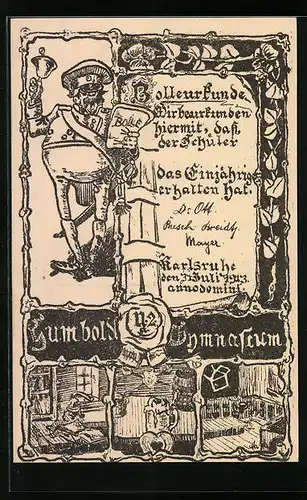 Bolleurkunde.
Wir beurkunden
hiermit, daß
der Schüler
Bolle
das Einjährige
erhalten hat.
Dr. Ott.
Mayer
Karlsruhe
den Juli 1913
anno domini.
Humbold Gymnasium